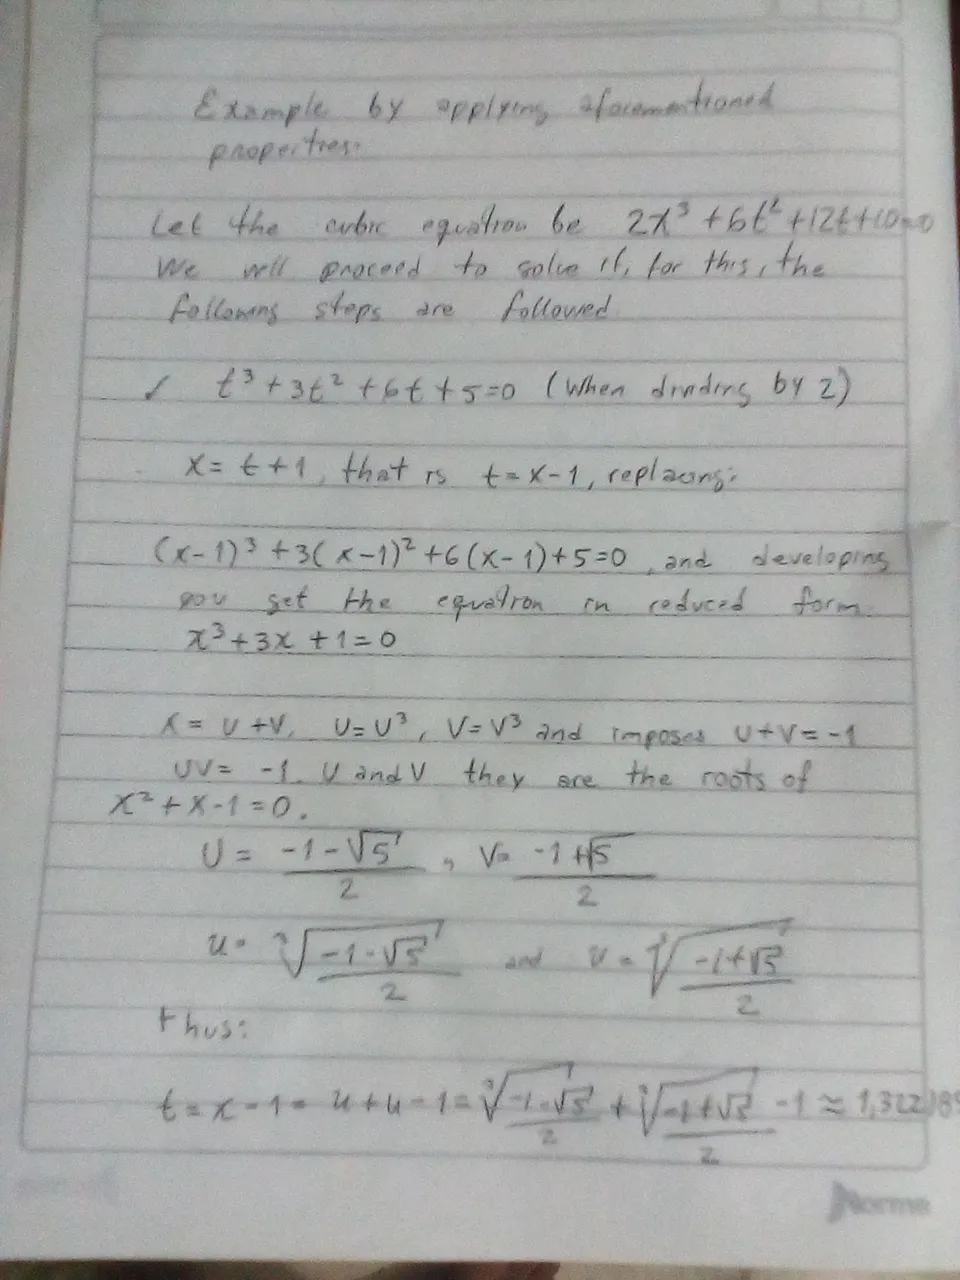 Example by applying aforementioned
properties:
Let the cubic equation be 2x³ + 6t² + 12t + 10 = 0
We will proceed to solve it, for this, the
following steps are followed
t³ + 3t² + 6t + 5 = 0 (When dividing by 2)
x = t + 1, that is t = x - 1, replacing:
(x - 1)³ + 3(x - 1)² + 6(x - 1) + 5 = 0, and developing
you get the equation in reduced form
x³ + 3x + 1 = 0
x = u + v, U = U³, V = V³ and imposes U + V = -1
UV = -1. U and V they are the roots of
x² + x - 1 = 0.
U = (-1 - √5)/2, V = (-1 + √5)/2
u = ∛((-1 - √5)/2) and v = ∛((-1 + √5)/2)
thus:
t = x - 1 = u + u - 1 = ∛((-1 - √5)/2) + ∛((-1 + √5)/2) - 1 ≈ 1,322
Norma